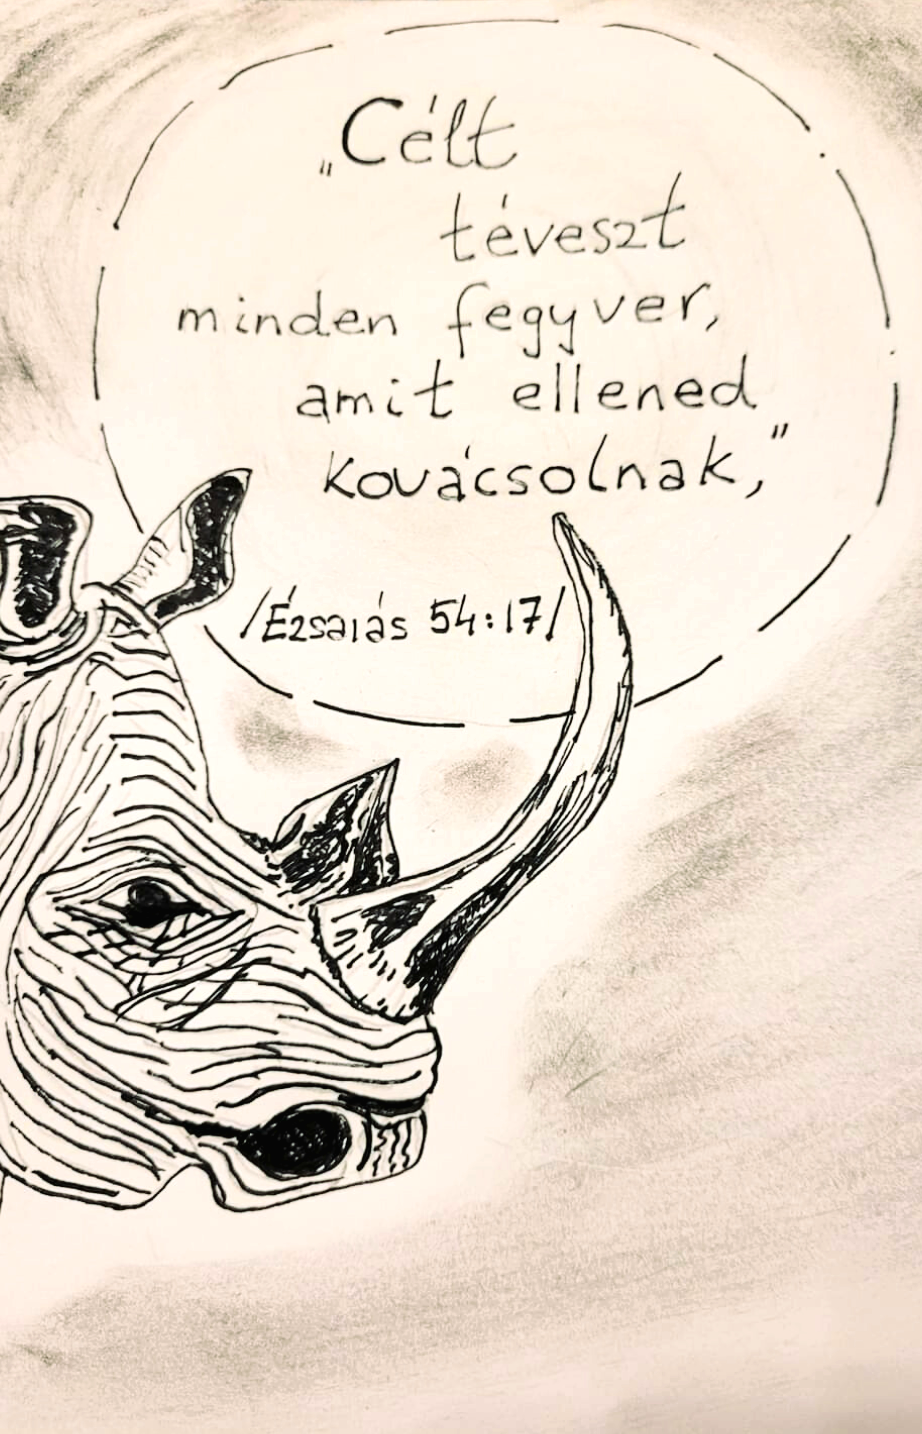 „Célt
téveszt
minden fegyver,
amit ellened
kovácsolnak,"
/Ézsaiás 54:17/